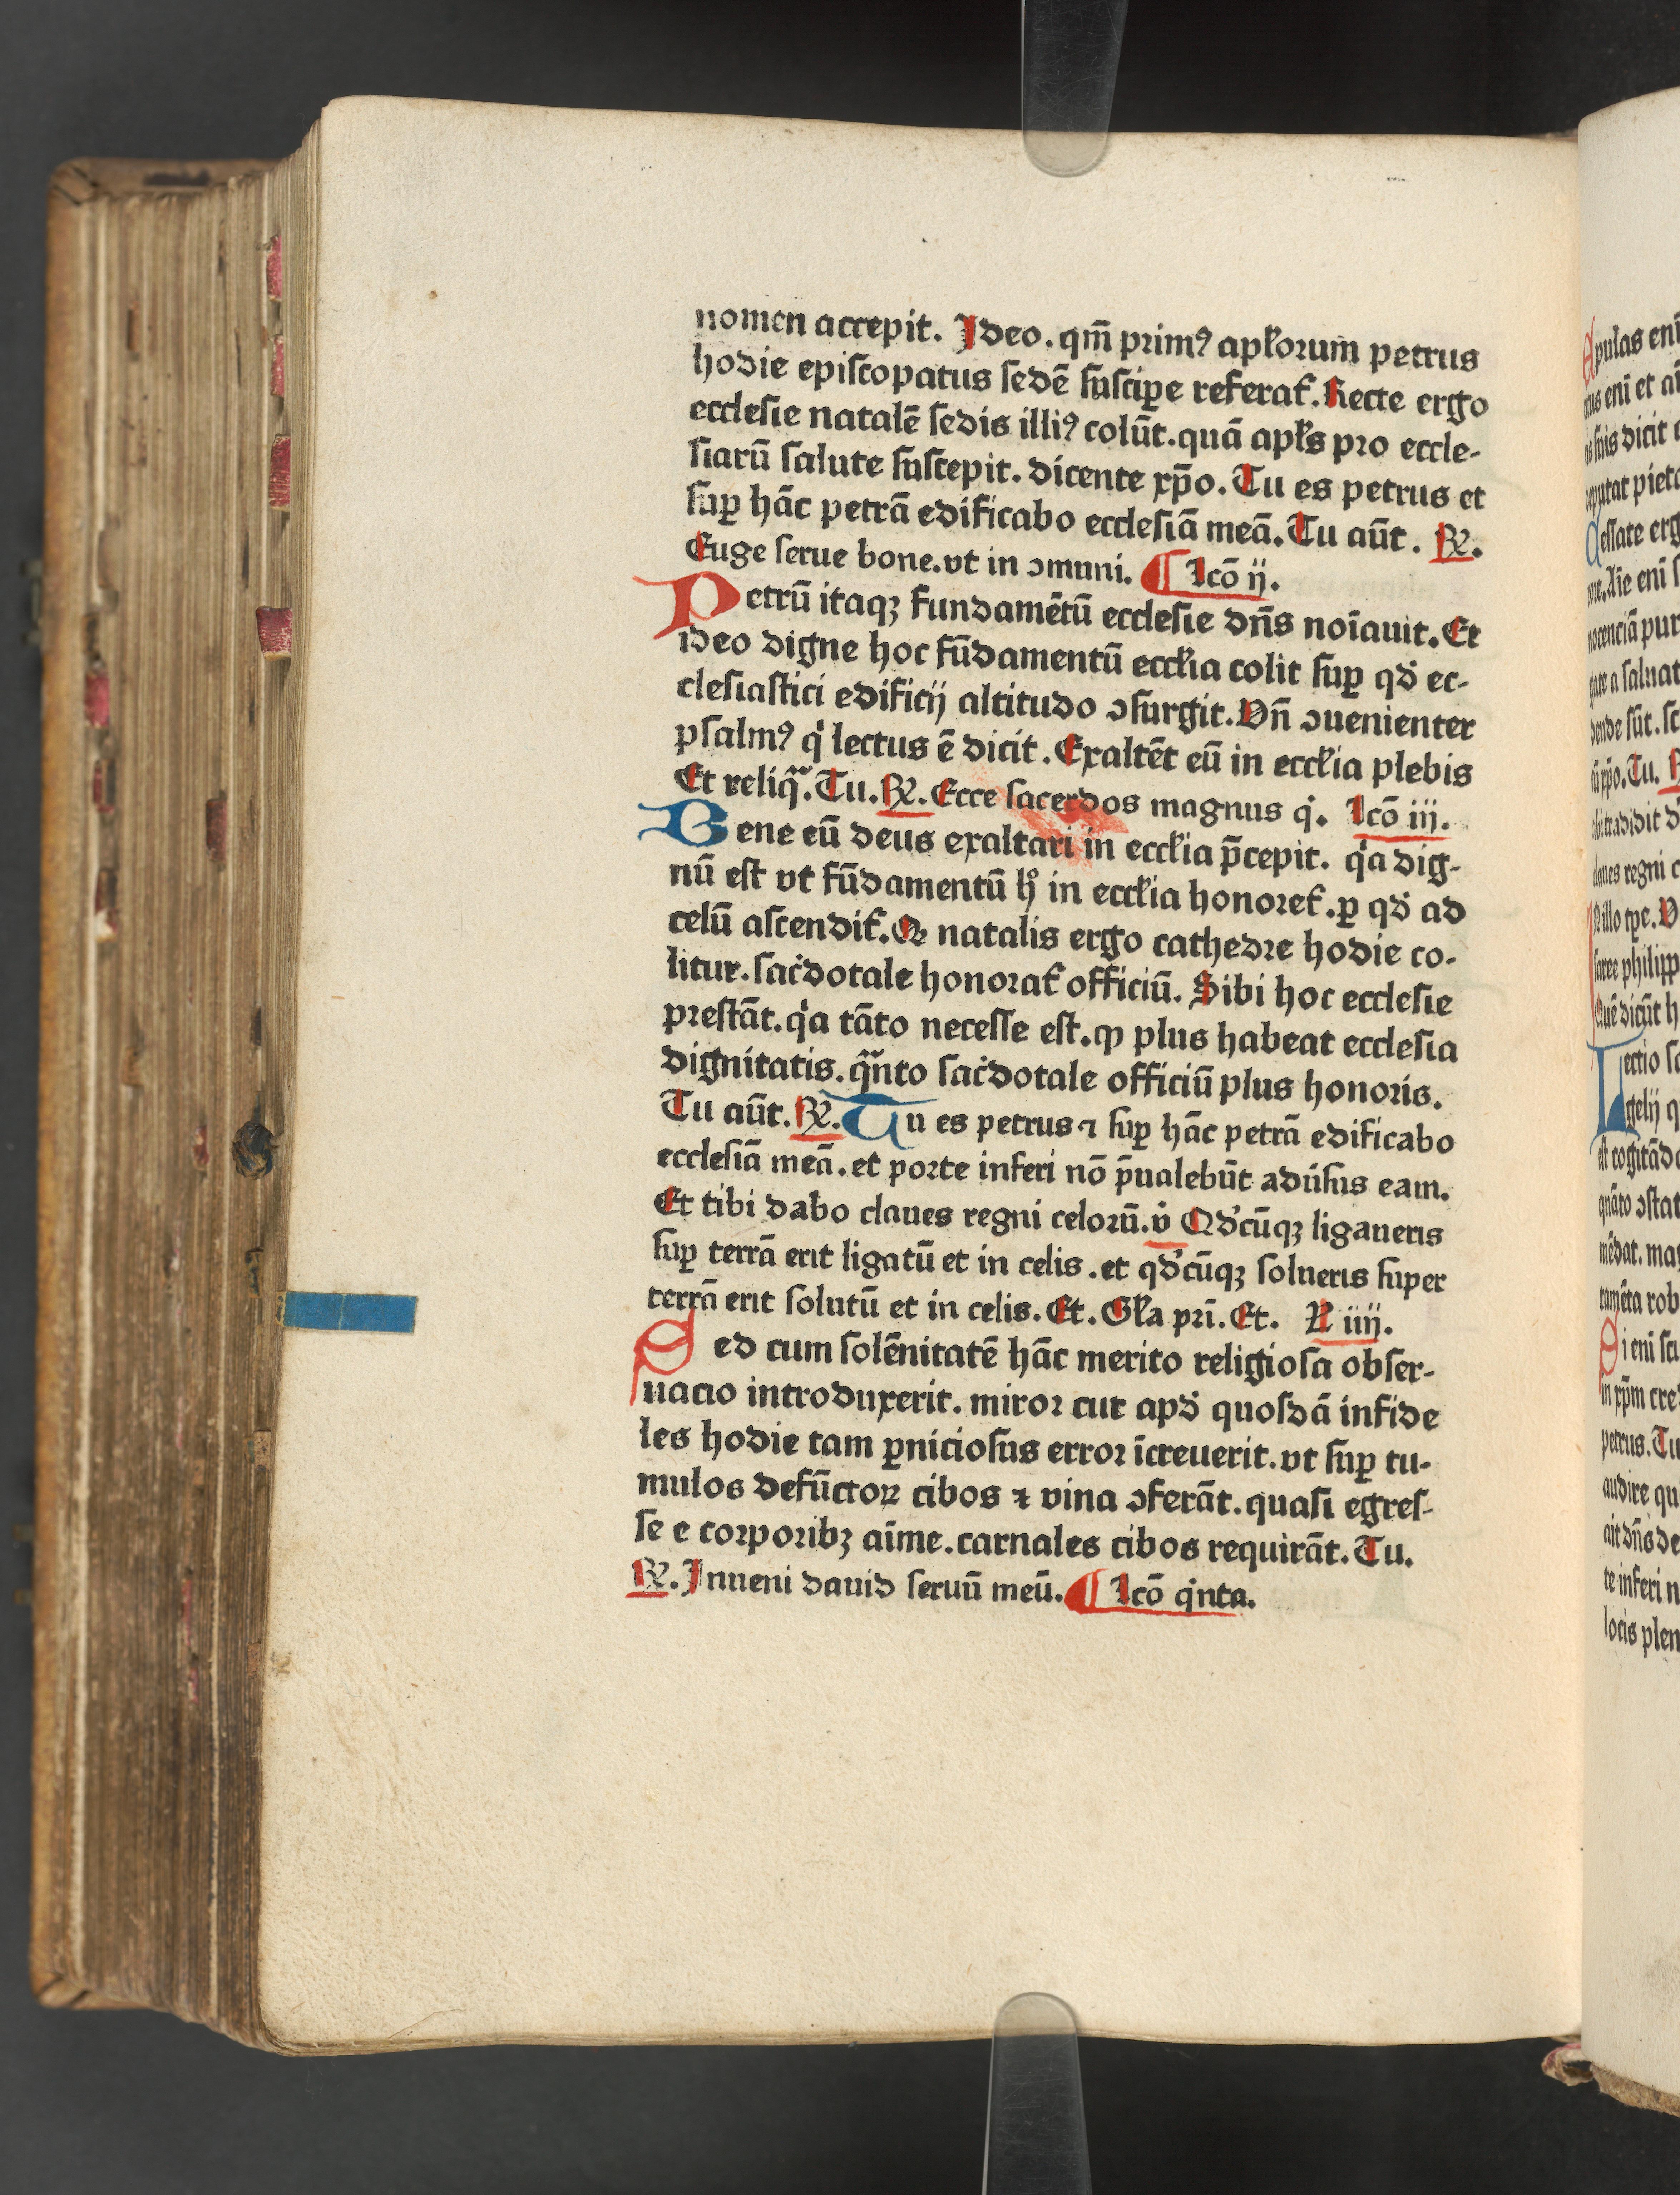 nomen accepit. Ideo. qm̄ primꝰ apl̓orum petrus
hodie episcopatus sedē suscip̱e referat᷑. Recte ergo
ecclesie natalē sedis illiꝰ colūt. quā apl̓s pro eccle-
siarū salute suscepit. dicente xp̄o. Tu es petrus et
suꝑ hāc petrā edificabo ecclesiā meā. Tu aūt. ℟.
Euge serue bone. vt in ↄmuni. ¶ Lcō ij.
Petrū itaqꝫ fundamētū ecclesie dn̄s noīauit. Et
ideo digne hoc fūdamentū eccl̓ia colit suꝑ qd̓ ec-
clesiastici edificij altitudo ↄsurgit. Vn̄ ↄuenienter
psalmꝰ q̇ lectus ē dicit. Exaltēt eū in eccl̓ia plebis
Et reliq̄. Tu. ℟. Ecce sacerdos magnus q̇. Lcō iij.
Bene eū deus exaltari in eccl̓ia p̄cepit. q̇a dig-
nū est vt fūdamentū hͦ in eccl̓ia honoret᷑. ꝑ qd̓ ad
celū ascendit᷑. Qꝛ natalis ergo cathedre hodie co-
litur. sac̓dotale honorat᷑ officiū. Sibi hoc ecclesie
prestāt. q̇a tāto necesse est. ꝙ plus habeat ecclesia
dignitatis. q̄nto sac̓dotale officiū plus honoris.
Tu aūt. ℟. Tu es petrus ⁊ suꝑ hāc petrā edificabo
ecclesiā meā. et porte inferi nō p̄ualebūt adu̓sus eam.
Et tibi dabo claues regni celorū. v̓ Qd̓cūqꝫ ligaueris
suꝑ terrā erit ligatū et in celis. et qd̓cūqꝫ solueris super
terrā erit solutū et in celis. Et. Gl̓a pri̅. Et. L iiij.
Sed cum solēnitatē hāc merito religiosa obser-
uacio introduxerit. miror cur apd̓ quosdā infide
les hodie tam ꝑniciosus error īcreuerit. vt suꝑ tu-
mulos defūctoꝝ cibos ⁊ vina ↄferāt. quasi egres-
se e corporibꝫ aīme. carnales cibos requirāt. Tu.
℟. Inueni dauid seruū meū. ¶ Lcō q̇nta.